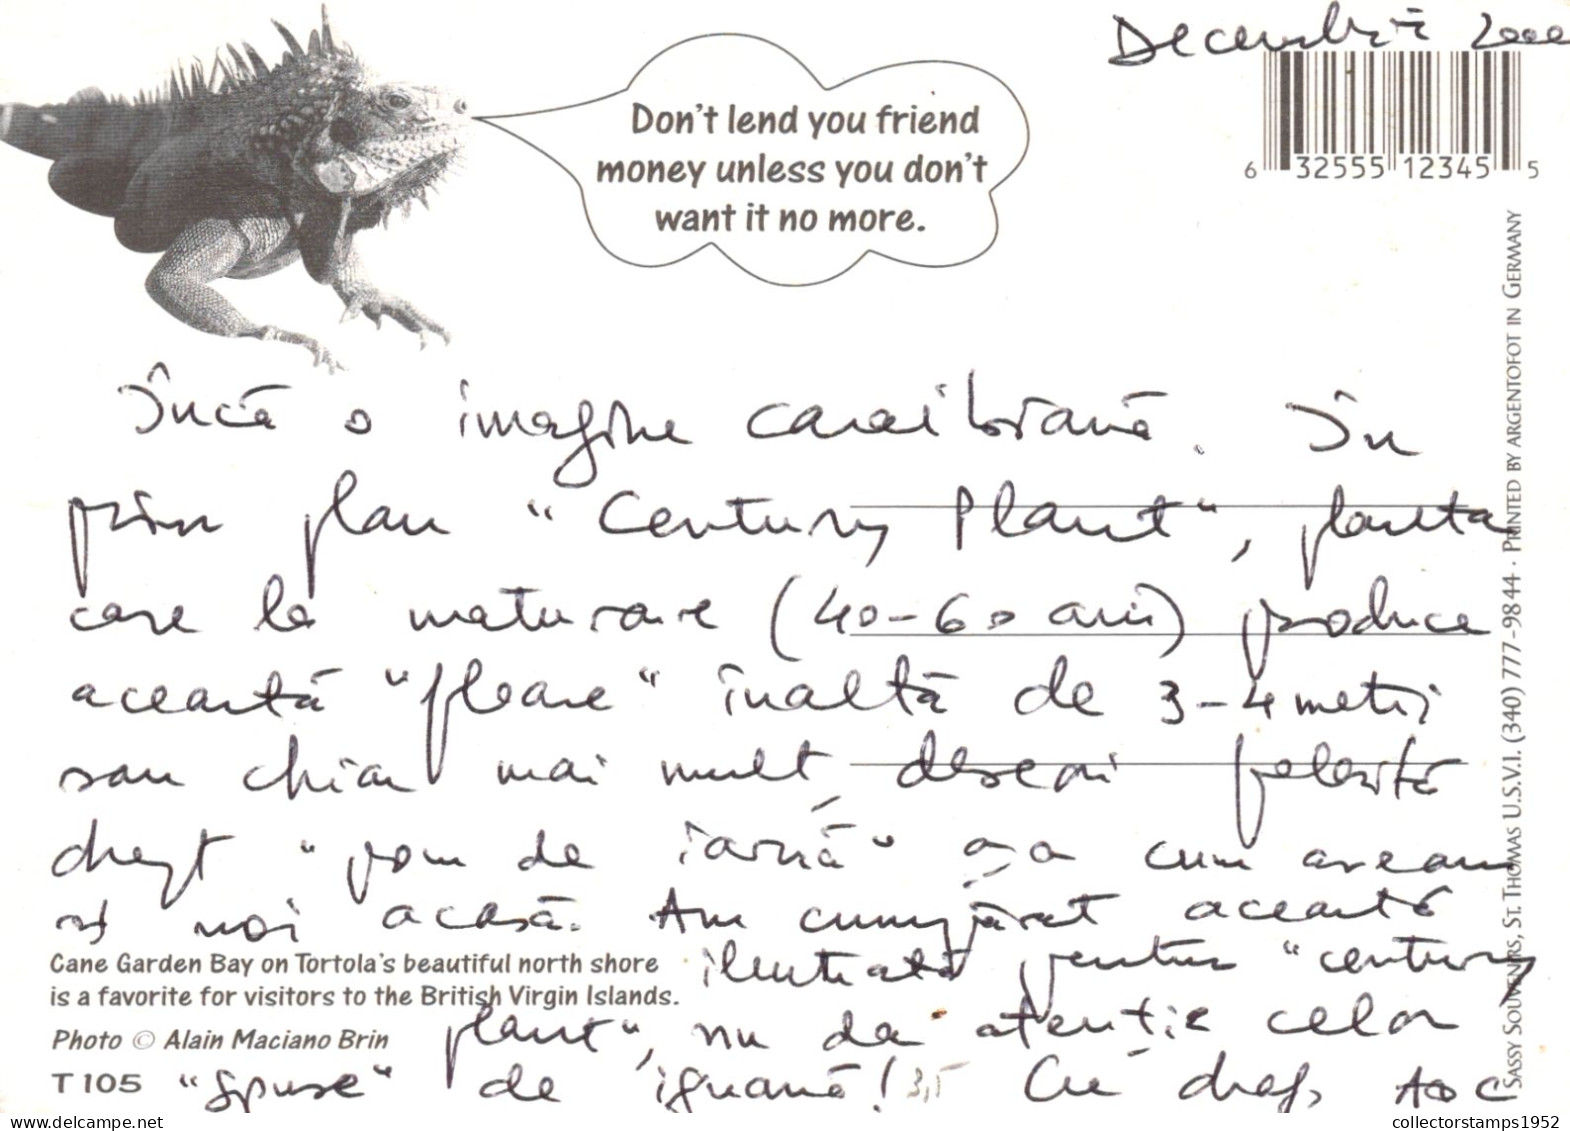 Decembrie 2000
Don't lend you friend
money unless you don't
want it no more.
6 32555 12345 5
Încă o imagine caraibiană. În
prim plan "Century Plant", planta
care la maturare (40-60 ani) produce
această "floare" înaltă de 3-4 metri
sau chiar mai mult, deseori folosită
drept "pom de iarnă" așa cum aveam
și noi acasă. Am cumpărat această
ilustrată pentru "century
plant", nu da atenție celor
"spuse" de iguană! 3,5 Cu drag,
Cane Garden Bay on Tortola's beautiful north shore
is a favorite for visitors to the British Virgin Islands.
Photo © Alain Maciano Brin
T 105
SASSY SOUVENIRS, ST. THOMAS U.S.V.I. (340) 777-9844 · PRINTED BY ARGENTOFOT IN GERMANY
collectorstamps1952